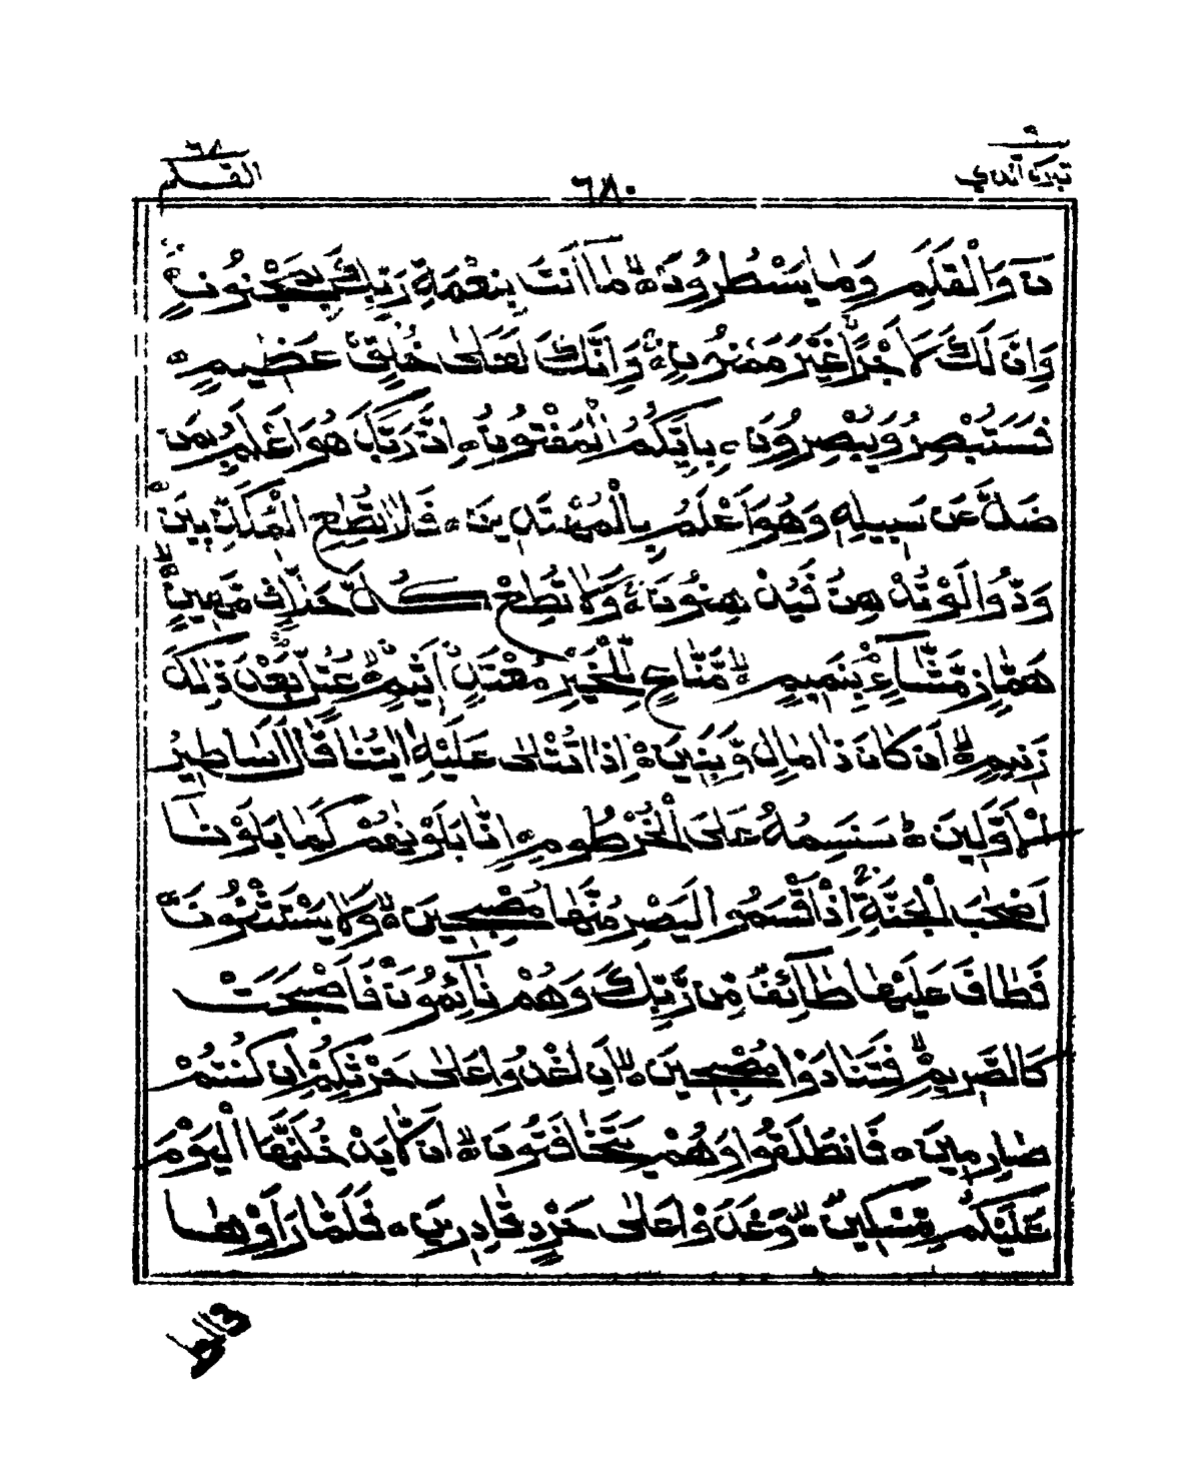 ٢٩
تبرك الذي
٦٨٠
٦٨
القلم
نٓ وَالْقَلَمِ وَمَا يَسْطُرُونَ ۝ مَآ اَنْتَ بِنِعْمَةِ رَبِّكَ بِمَجْنُونٍ ۝
وَاِنَّ لَكَ لَاَجْرًا غَيْرَ مَمْنُونٍ ۝ وَاِنَّكَ لَعَلٰى خُلُقٍ عَظِيمٍ ۝
فَسَتُبْصِرُ وَيُبْصِرُونَ ۝ بِاَيِّكُمُ الْمَفْتُونُ ۝ اِنَّ رَبَّكَ هُوَ اَعْلَمُ بِمَنْ
ضَلَّ عَنْ سَبِيلِهٖ وَهُوَ اَعْلَمُ بِالْمُهْتَدِينَ ۝ فَلَا تُطِعِ الْمُكَذِّبِينَ ۝
وَدُّوا لَوْ تُدْهِنُ فَيُدْهِنُونَ ۝ وَلَا تُطِعْ كُلَّ حَلَّافٍ مَّهِينٍ ۝
هَمَّازٍ مَّشَّآءٍ بِنَمِيمٍ ۝ مَّنَّاعٍ لِّلْخَيْرِ مُعْتَدٍ اَثِيمٍ ۝ عُتُلٍّ بَعْدَ ذٰلِكَ
زَنِيمٍ ۝ اَنْ كَانَ ذَا مَالٍ وَّبَنِينَ ۝ اِذَا تُتْلٰى عَلَيْهِ اٰيٰتُنَا قَالَ اَسَاطِيرُ
الْاَوَّلِينَ ۝ سَنَسِمُهُ عَلَى الْخُرْطُومِ ۝ اِنَّا بَلَوْنٰهُمْ كَمَا بَلَوْنَا
اَصْحٰبَ الْجَنَّةِ اِذْ اَقْسَمُوا لَيَصْرِمُنَّهَا مُصْبِحِينَ ۝ وَلَا يَسْتَثْنُونَ ۝
فَطَافَ عَلَيْهَا طَآئِفٌ مِّنْ رَّبِّكَ وَهُمْ نَآئِمُونَ ۝ فَاَصْبَحَتْ
كَالصَّرِيمِ ۝ فَتَنَادَوْا مُصْبِحِينَ ۝ اَنِ اغْدُوا عَلٰى حَرْثِكُمْ اِنْ كُنْتُمْ
صَارِمِينَ ۝ فَانْطَلَقُوا وَهُمْ يَتَخَافَتُونَ ۝ اَنْ لَّا يَدْخُلَنَّهَا الْيَوْمَ
عَلَيْكُمْ مِّسْكِينٌ ۝ وَّغَدَوْا عَلٰى حَرْدٍ قَادِرِينَ ۝ فَلَمَّا رَاَوْهَا
قالوا